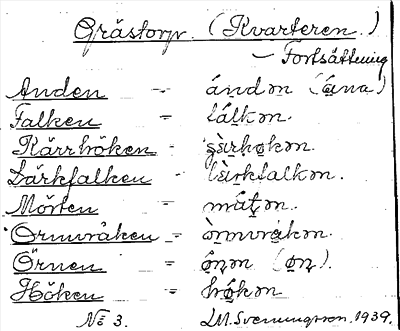 Grästorp. (Kvarteren.)
— Fortsättning
Anden - ándən (á̤na)
Falken = fálkən.
Kärrhöken = çæ̀rhø̤kən.
Lärkfalken - læ̀rkfalkən.
Mörten = mǿṭən.
Ormvråken = òrmvrå̤kən.
Örnen = ǿ̤ṇən (ǿ̤ṇ).
Höken = hǿ̤kən
No 3. LM. Svenungsson. 1939.